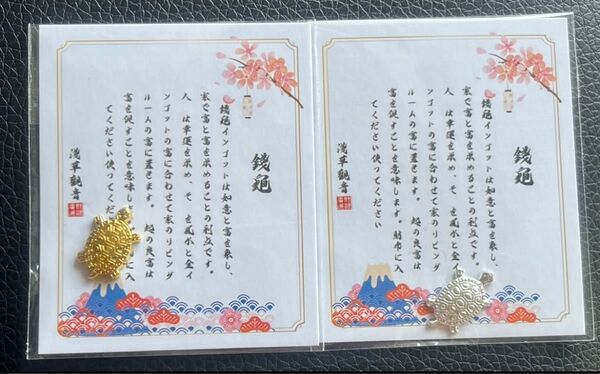 銭亀
銭亀インゴットは如意と富を表し、
家で富と富を求めることの利点です。
人、は幸運を求め、そ、を風水と金イ
ンゴットの富に合わせて家のリビング
ルームの富に置きます。亀の良富は
富を促すことを意味します。に入
てください使ってください
浅草觀音
銭亀
銭亀インゴットは如意と富を表し、
家で富と富を求めることの利点です。
人、は幸運を求め、そ、を風水と金イ
ンゴットの富に合わせて家のリビング
ルームの富に置きます。亀の良富は
富を促すことを意味します。財布に入
てください使ってください
浅草觀音